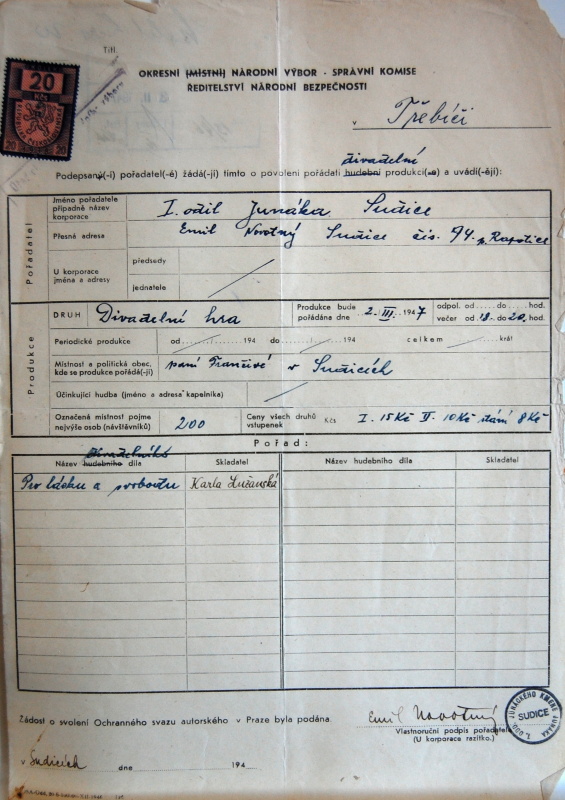 Tit.
20
Kčs
REPUBLIKA ČESKOSLOVENSKÁ
20 20
OKRESNÍ (MÍSTNÍ) NÁRODNÍ VÝBOR - SPRÁVNÍ KOMISE
ŘEDITELSTVÍ NÁRODNÍ BEZPEČNOSTI
v Třebíči
divadelní
Podepsaný(-í) pořadatel(-é) žádá(-jí) tímto o povolení pořádati hudební produkci(-e) a uvádí(-ějí):
Pořadatel
Jméno pořadatele
případně název
korporace
I. odíl Junáka Sudice
Přesná adresa
Emil Novotný Sudice čís. 74. p. Rapotice
U korporace
jména a adresy
předsedy
jednatele
Produkce
DRUH Divadelní hra
Produkce bude
pořádána dne 2. III. 1947
odpol. od do hod.
večer od 18. do 20. hod.
Periodické produkce od 194 do 194 celkem krát
Místnost a politická obec,
kde se produkce pořádá(-jí)
paní Frančivé v Sudicích
Účinkující hudba (jméno a adresa kapelníka)
Označené místnost pojme
nejvýše osob (návštěvníků)
200
Ceny všech druhů
vstupenek Kčs I. 15 Kč II. 10 Kč stání 8 Kč
Pořad:
Divadelního
Název hudebního díla Skladatel Název hudebního díla Skladatel
Pro lásku a svobodu Karla Lužanská
Žádost o svolení Ochranného svazu autorského v Praze byla podána.
Emil Novotný
Vlastnoruční podpis pořadatele
(U korporace razítko.)
1. ODD. JUNÁCKÉHO KMENE JUNÁKA
SUDICE
v Sudicích dne 194